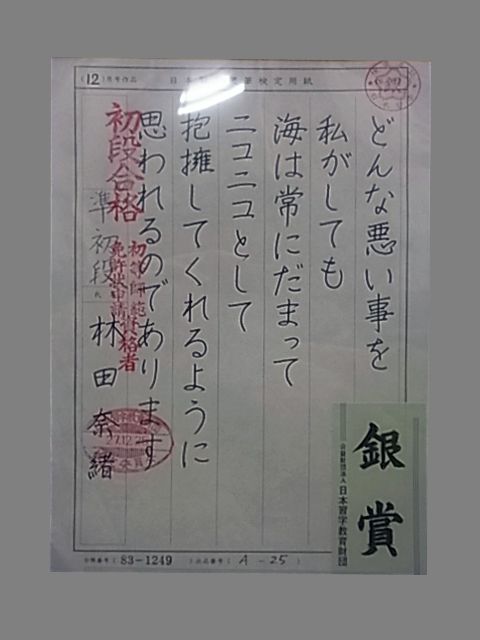 (12)月号作品
日本 筆検定用紙
どんな悪い事を
私がしても
海は常にだまって
ニコニコとして
抱擁してくれるように
思われるのであります
初段合格
初等師範資格者
免許状申請
準初段
林田奈緒
27.12.
銀賞
公益財団法人 日本習字教育財団
(83-1249)
出品番号(A-25)